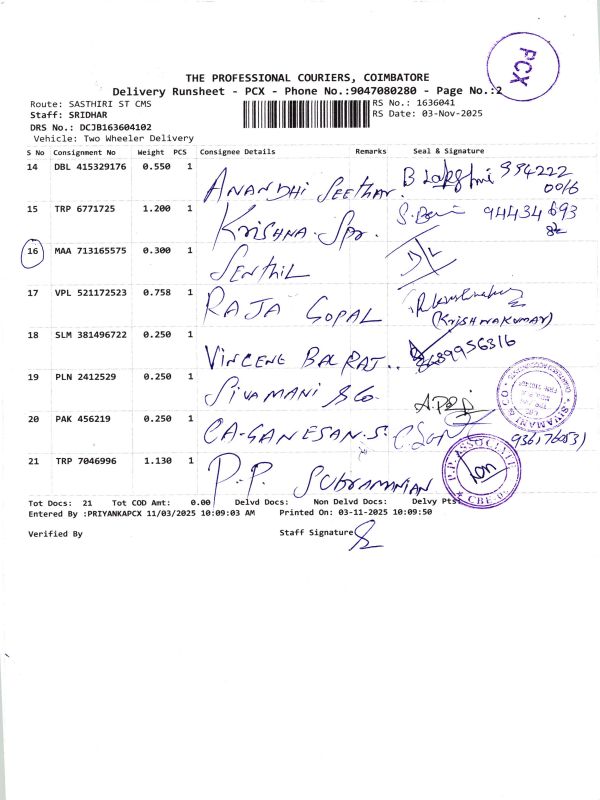 PCX
THE PROFESSIONAL COURIERS, COIMBATORE
Delivery Runsheet - PCX - Phone No.:9047080280 - Page No.:2
Route: SASTHIRI ST CMS
RS No.: 1636041
Staff: SRIDHAR
RS Date: 03-Nov-2025
DRS No.: DCJB163604102
Vehicle: Two Wheeler Delivery
S No Consignment No Weight PCS Consignee Details Remarks Seal & Signature
14 DBL 415329176 0.550 1 ANANDHI SEETHAR. B Lakshmi 994222
0016
15 TRP 6771725 1.200 1 KRISHNA. Spr. 94434 693
16 MAA 713165575 0.300 1 SENTHIL D/L
17 VPL 521172523 0.758 1 RAJA GOPAL
(KRISHNAKUMAR)
18 SLM 381496722 0.250 1 VINCENE BAL RAJ..
19 PLN 2412529 0.250 1 SIVAMANI & Co.
SIVAMANI & CO
20 PAK 456219 0.250 1 CA-GANESAN.S.
21 TRP 7046996 1.130 1 P.P. SUBRAMANIAN
P.P. ASSOCIATE
CBE
Tot Docs: 21 Tot COD Amt: 0.00 Delvd Docs: Non Delvd Docs: Delvy Pts:
Entered By :PRIYANKAPCX 11/03/2025 10:09:03 AM Printed On: 03-11-2025 10:09:50
Verified By Staff Signature